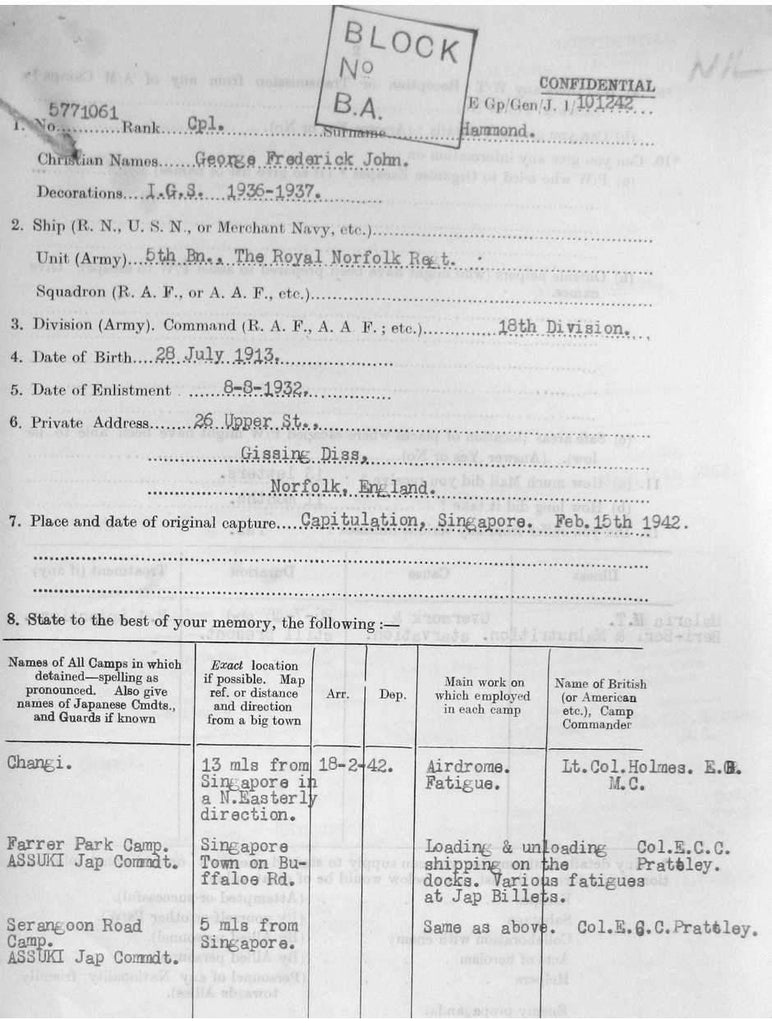 BLOCK
No
B.A.
NIL
CONFIDENTIAL
E Gp/Gen/J. 1/101242
1. No. 5771061 Rank Cpl. Surname Hammond.
Christian Names George Frederick John.
Decorations I.G.S. 1936-1937.
2. Ship (R. N., U. S. N., or Merchant Navy, etc.)
Unit (Army) 5th Bn., The Royal Norfolk Regt.
Squadron (R. A. F., or A. A. F., etc.)
3. Division (Army). Command (R. A. F., A. A F. ; etc.) 18th Division.
4. Date of Birth 28 July 1913.
5. Date of Enlistment 8-8-1932.
6. Private Address 26 Upper St.,
Gissing Diss,
Norfolk, England.
7. Place and date of original capture Capitulation, Singapore. Feb. 15th 1942.
8. State to the best of your memory, the following :—
Names of All Camps in which
detained—spelling as
pronounced. Also give
names of Japanese Cmdts.,
and Guards if known
Exact location
if possible. Map
ref. or distance
and direction
from a big town
Arr.
Dep.
Main work on
which employed
in each camp
Name of British
(or American
etc.), Camp
Commander
Changi.
13 mls from
Singapore in
a N.Easterly
direction.
18-2-42.
Airdrome.
Fatigue.
Lt.Col.Holmes. E.B.
M.C.
Farrer Park Camp.
ASSUKI Jap Commdt.
Singapore
Town on Bu-
ffaloe Rd.
Loading & unloading
shipping on the
docks. Various fatigues
at Jap Billets.
Col.E.C.C.
Prattley.
Serangoon Road
Camp.
ASSUKI Jap Commdt.
5 mls from
Singapore.
Same as above.
Col.E.C.C.Prattley.